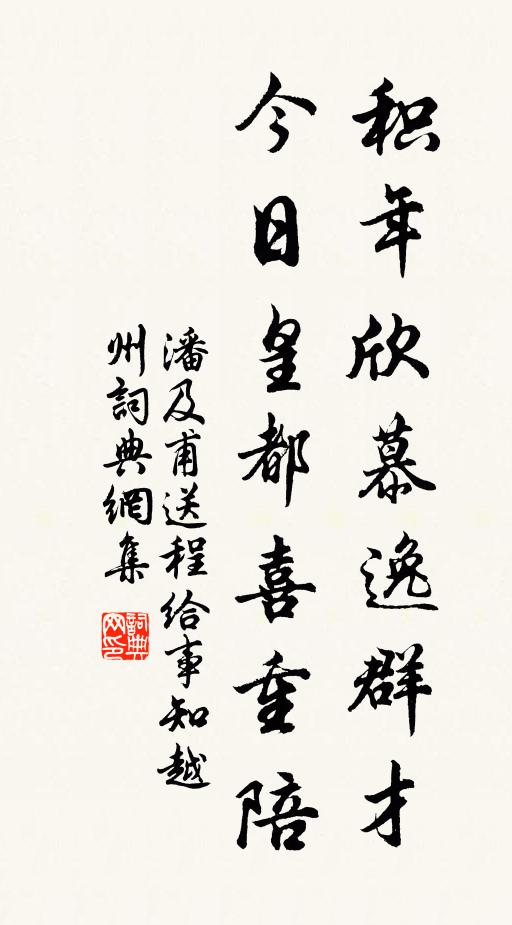 积年欣慕逸群才
今日皇都喜重陪
潘及甫送程给事知越
州詞典網集
詞典网印